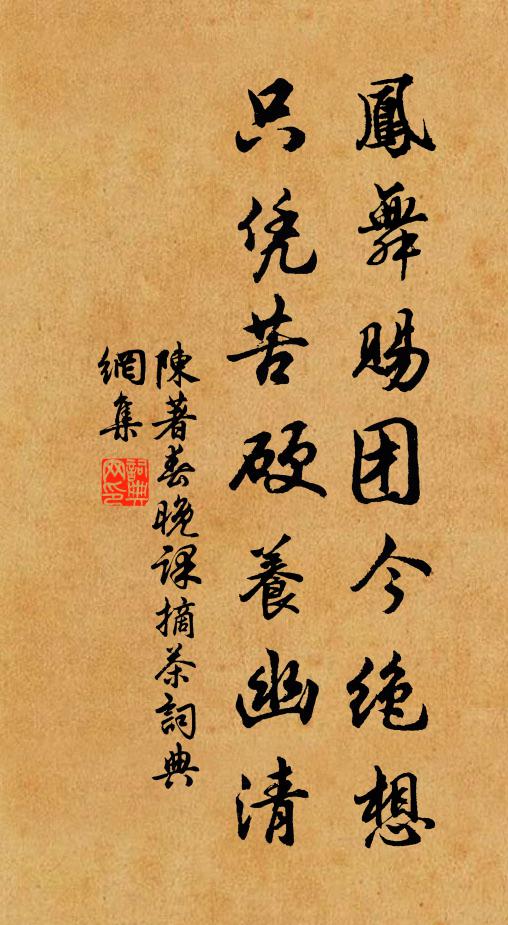 鳳舞賜团今绝想
只凭苦硬養幽清
陳著春晚课摘茶詞典
網集
詞典
网印